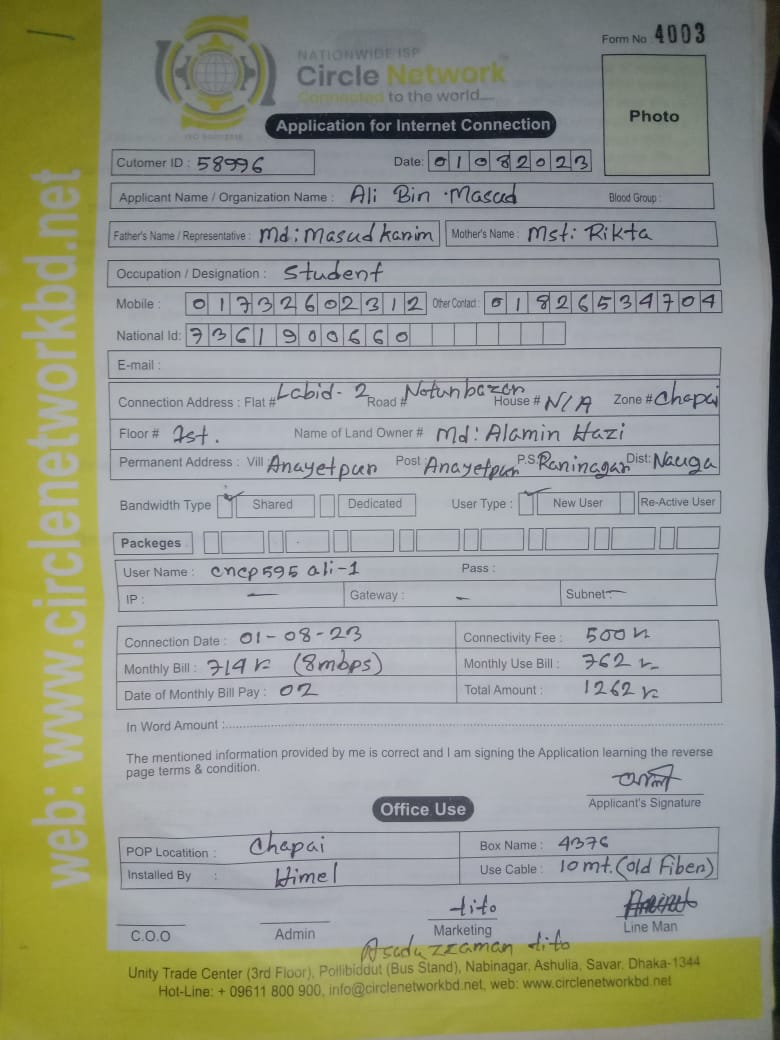 NATIONWIDE ISP
Circle Network
Connected to the world....
Form No 4003
Application for Internet Connection
Photo
Cutomer ID : 58996
Date: 01082023
Applicant Name / Organization Name : Ali Bin Masud
Blood Group :
Father's Name / Representative : Md: Masud karim
Mother's Name : Mst: Rikta
Occupation / Designation : Student
Mobile : 01732602312 Other Contact : 01826534704
National Id: 7361900660
E-mail :
Connection Address : Flat # Labid-2 Road # Notunbazar House # N/A Zone # Chapai
Floor # 1st. Name of Land Owner # Md: Alamin Hazi
Permanent Address : Vill Anayetpur Post : Anayetpur P.S Raninagar Dist: Nauga
Bandwidth Type Shared Dedicated User Type : New User Re-Active User
Packeges
User Name : cncp595 ali-1 Pass :
IP : — Gateway : - Subnet: —
Connection Date : 01-08-23 Connectivity Fee : 500
Monthly Bill : 714 (8mbps) Monthly Use Bill : 762
Date of Monthly Bill Pay : 02 Total Amount : 1262
In Word Amount :
The mentioned information provided by me is correct and I am signing the Application learning the reverse
page terms & condition.
আলী
Applicant's Signature
Office Use
POP Locatition : Chapai Box Name : 4376
Installed By : Himel Use Cable : 10mt. (old Fiber)
tito
C.O.O Admin Marketing Line Man
Asaduzzaman tito
Unity Trade Center (3rd Floor), Pollibiddut (Bus Stand), Nabinagar, Ashulia, Savar, Dhaka-1344
Hot-Line: + 09611 800 900, info@circlenetworkbd.net, web: www.circlenetworkbd.net
web: www.circlenetworkbd.net